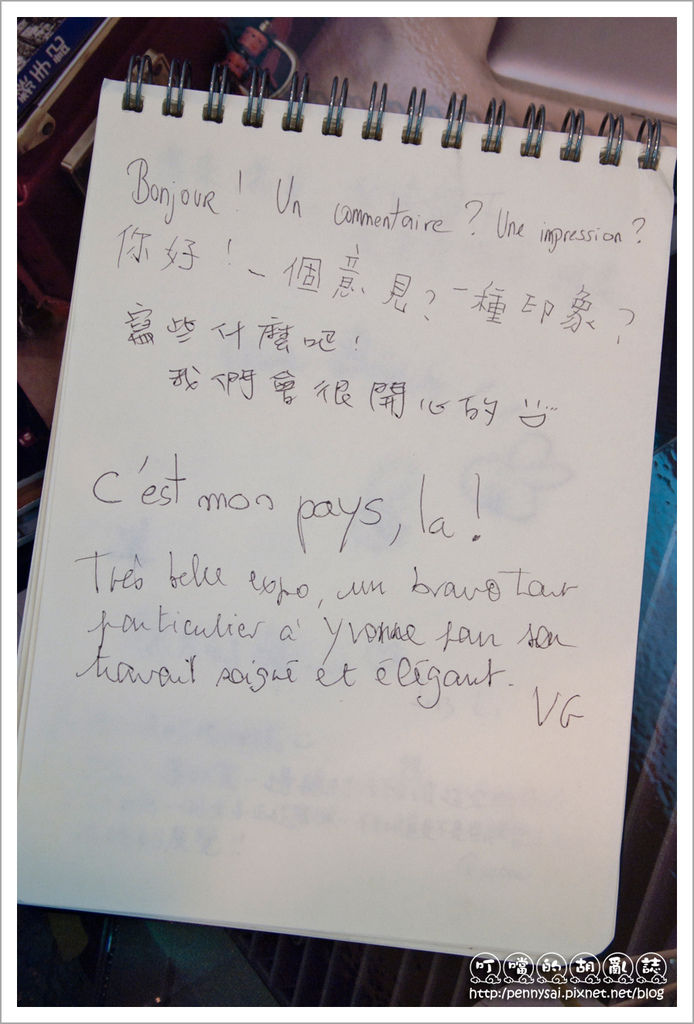 Bonjour ! Un commentaire ? Une impression ?
你好！一個意見？一種印象？
寫些什麼吧！
我們會很開心的
C'est mon pays, la !
Très belle expo, un bravo tout
particulier à Yvonne pour son
travail soigné et élégant.
VG
叮噹的胡亂誌
http://pennysai.pixnet.net/blog